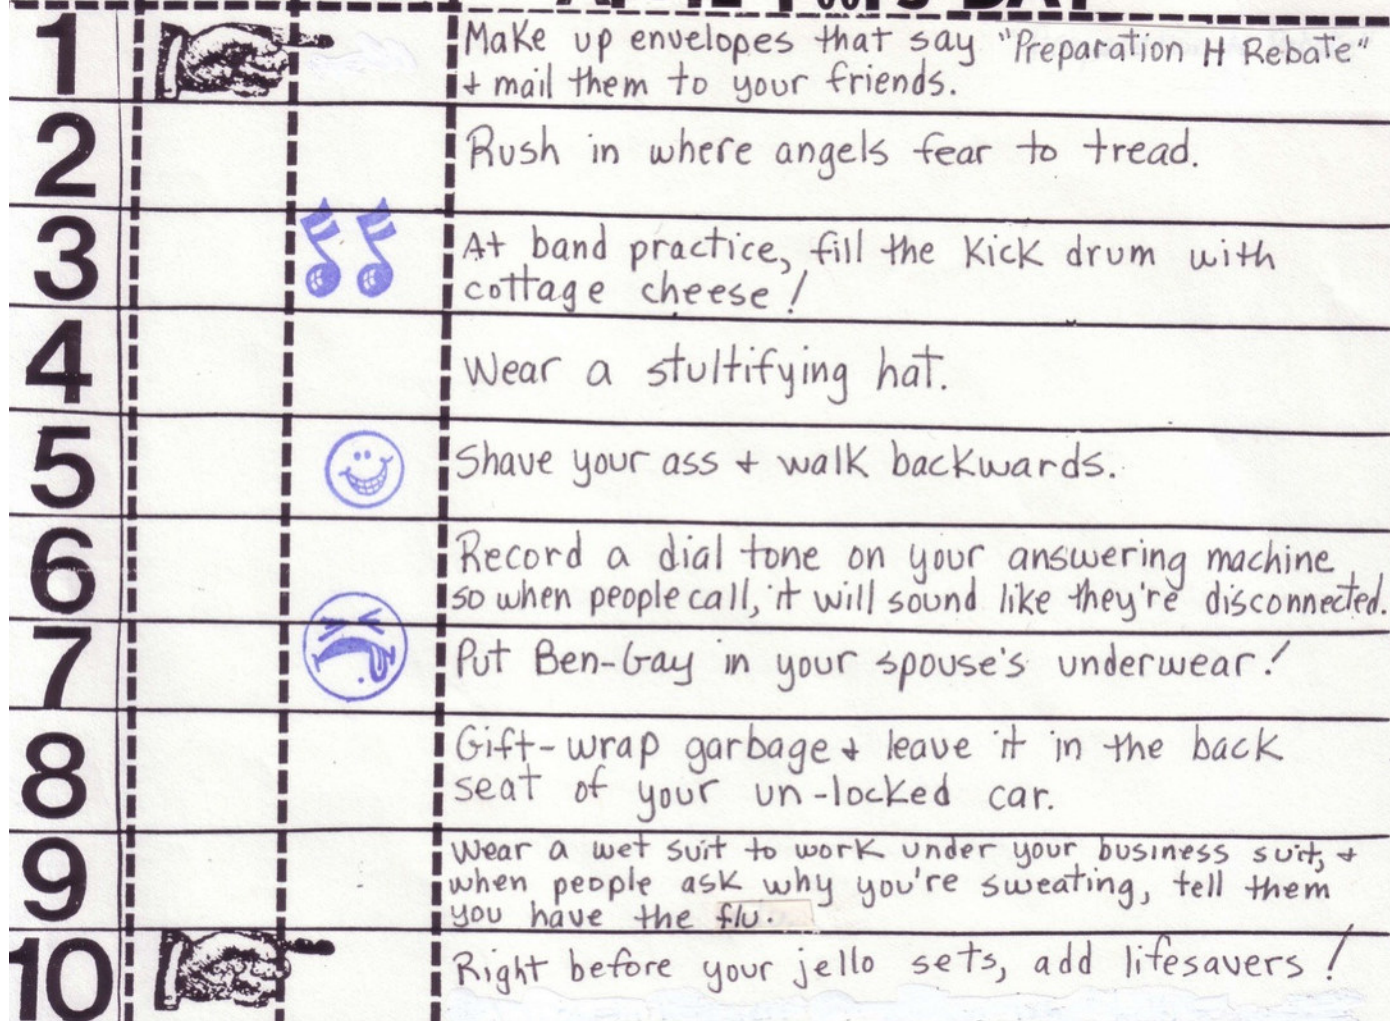 1
Make up envelopes that say "Preparation H Rebate"
+ mail them to your friends.
2
Rush in where angels fear to tread.
3
At band practice, fill the kick drum with
cottage cheese!
4
Wear a stultifying hat.
5
Shave your ass + walk backwards.
6
Record a dial tone on your answering machine
so when people call, it will sound like they're disconnected.
7
Put Ben-Gay in your spouse's underwear!
8
Gift-wrap garbage + leave it in the back
seat of your un-locked car.
9
Wear a wet suit to work under your business suit, +
when people ask why you're sweating, tell them
you have the flu.
10
Right before your jello sets, add lifesavers!